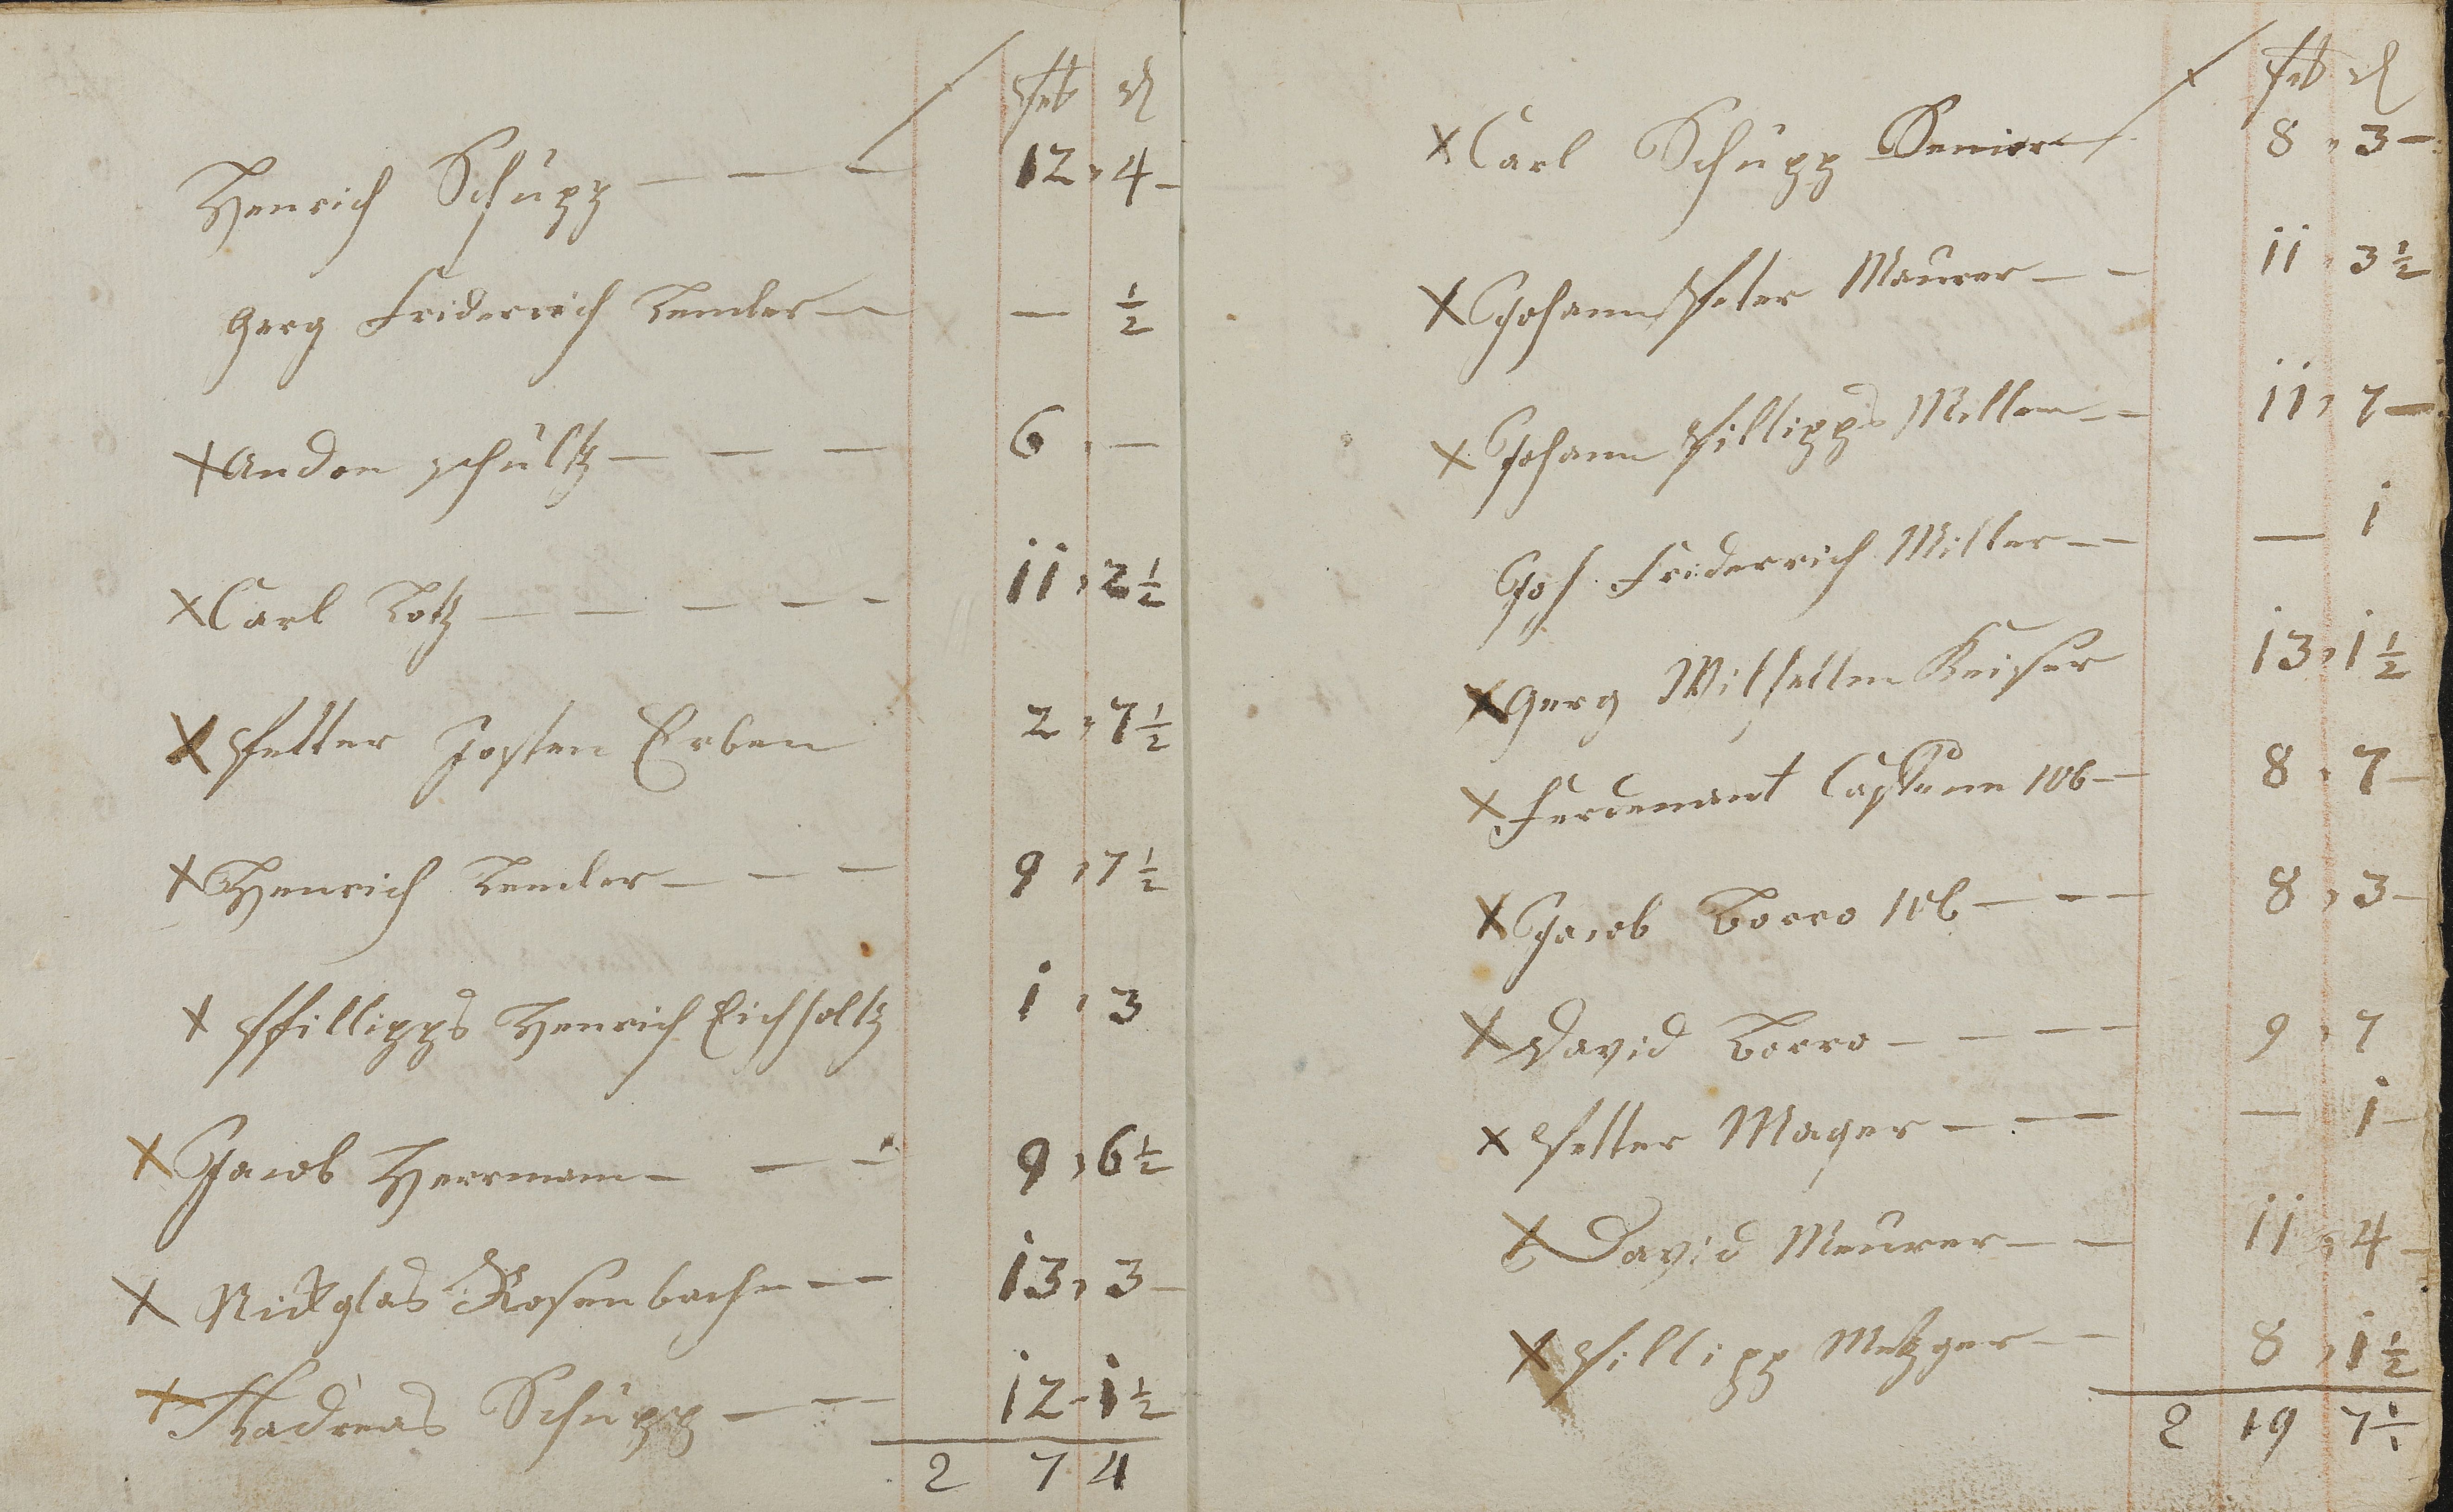 stb ₰
Henrich Schupp — — — 12 , 4 –
Gerg Friderrich Lemler — — ½
+ Andon Schultz — — — 6 , —
× Carl Lotz — — — — — 11 , 2½
× Petter Josten Erben 2 , 7½
× Henrich Lemler — — — 9 , 7½
× Phillipps Henrich Eichholtz 1 , 3
× Jacob Herrmann — — — 9 , 6½
× Nicklas Rosenbach — — 13 , 3 –
× Andreas Schupp — — 12 - 1½
2 7 4
stb ₰
× Carl Schupp Senior 8 , 3 –
× Johann Peter Maurer — — 11 , 3½
× Johann Phillipps Miller — — 11 , 7 –
Joh. Friderrich Miller — — — 1
× Gerg Wilhellm Keiser 13 , 1½
× Ferdenant 106 — 8 , 7 –
× Jacob Borro — — — 8 , 3 –
× David Borro — — — — 9 , 7
× Petter Mager — — — — 1 –
× David Meurer — — 11 , 4 –
× Phillipp Metzger — — 8 , 1½
2 19 7½